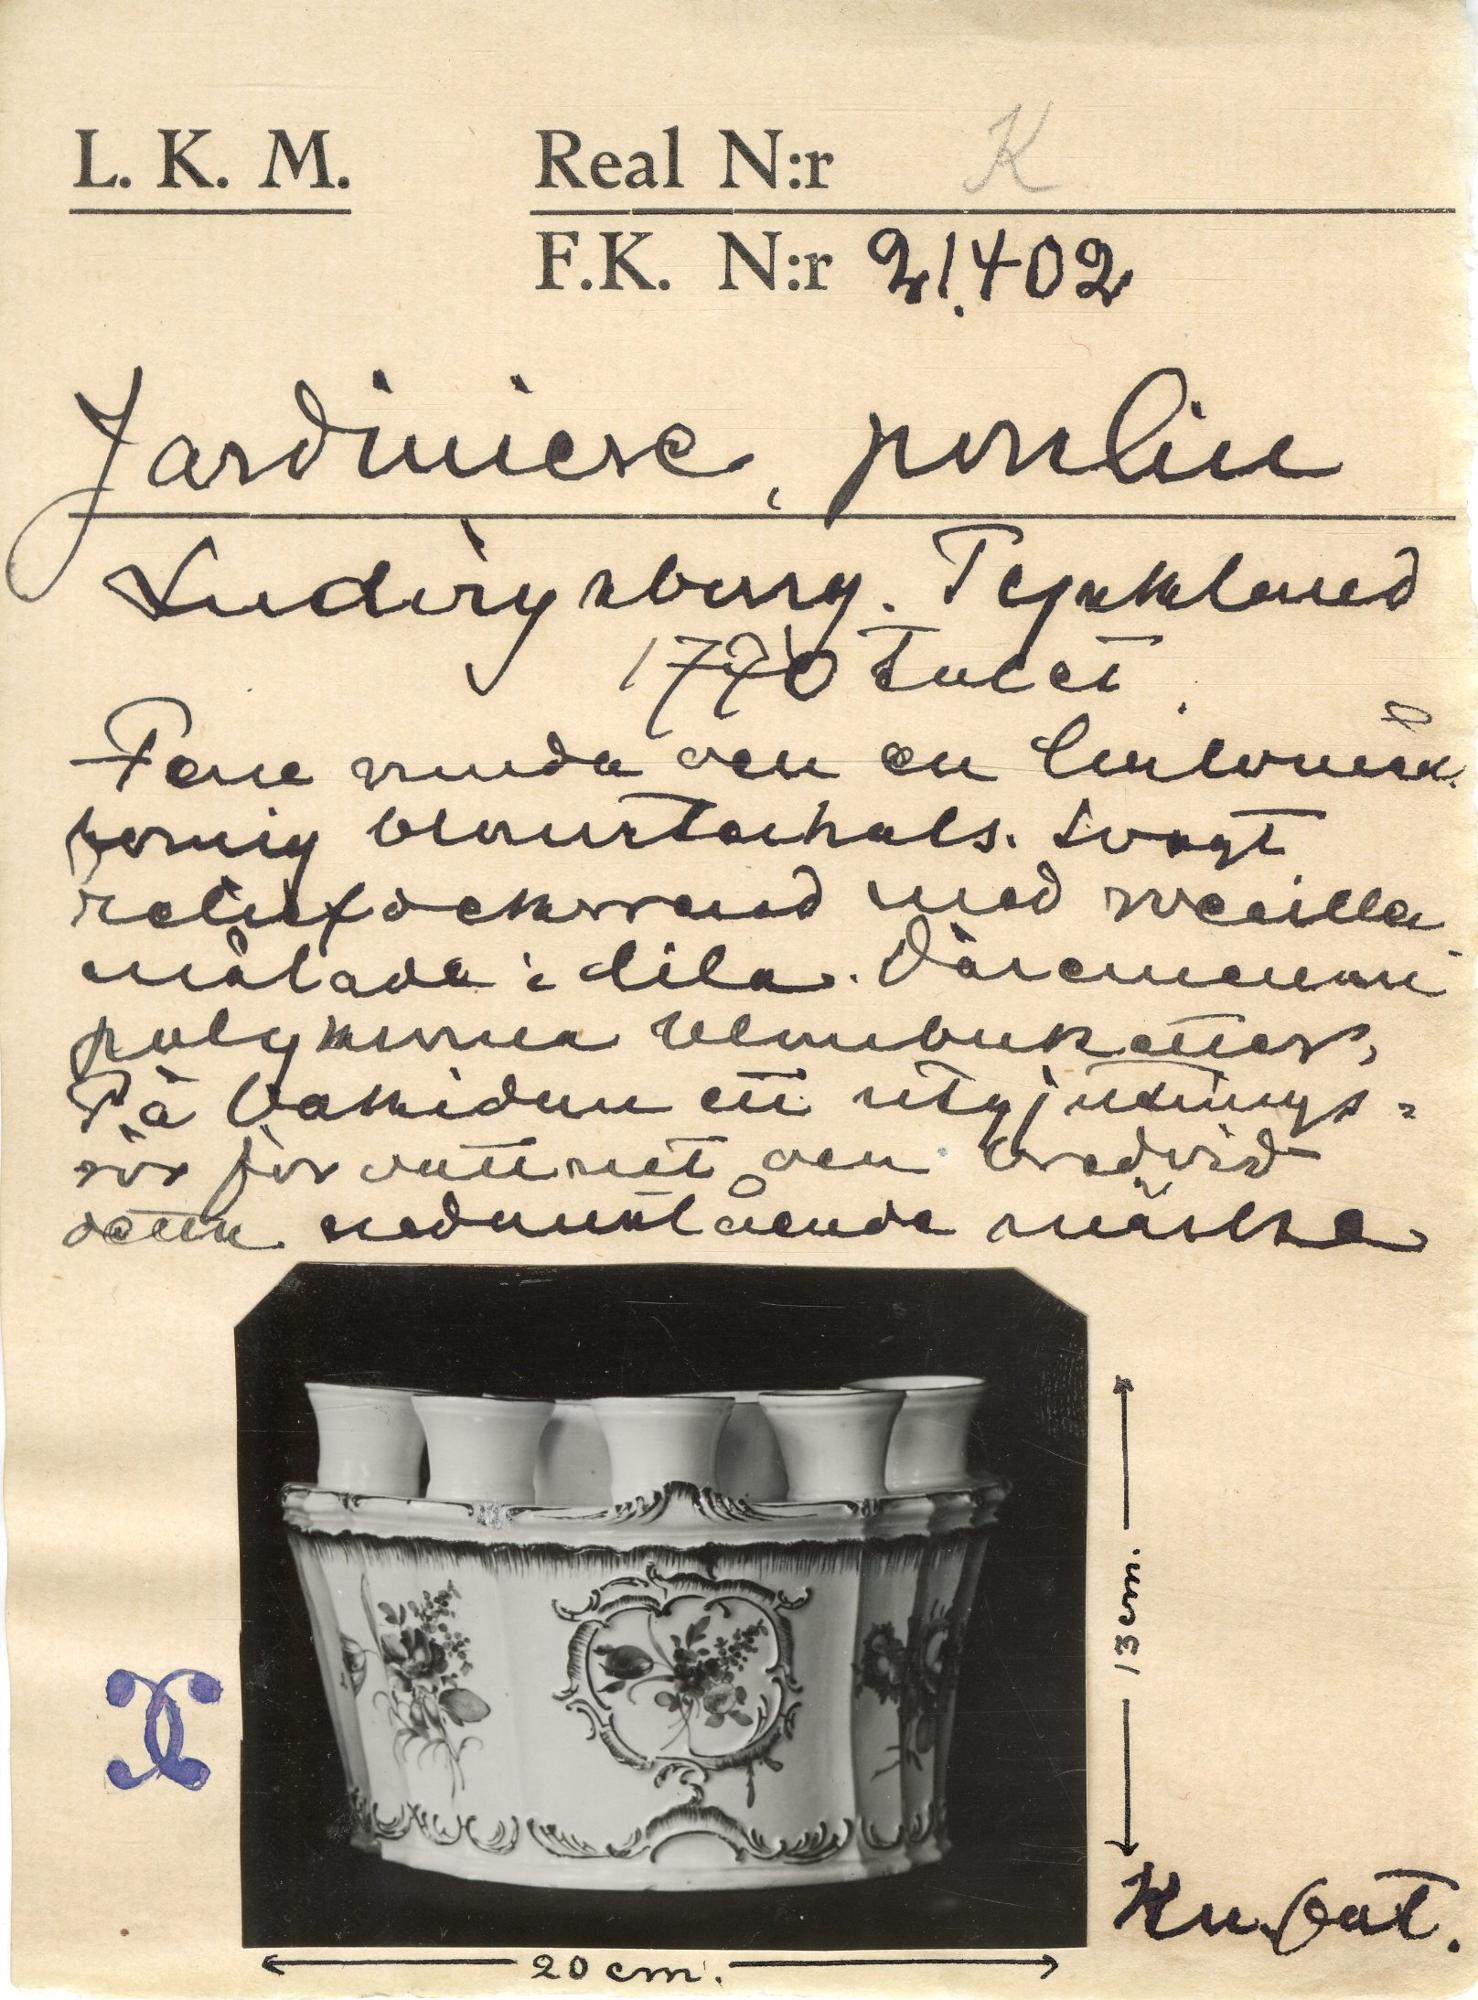 L. K. M.
Real N:r K
F.K. N:r 21.402
Jardiniere, porslin
Ludwigsburg. Tyskland
1770 talet.
Fem runda och en
formig blomsterhals. Svagt
reliefdekorerad med rocailler
målade i lila. Däremellan
polykroma blombuketter,
På baksidan ett utgjutnings-
rör för vattnet och bredvid
detta nedanstående märke
13 cm.
20 cm.